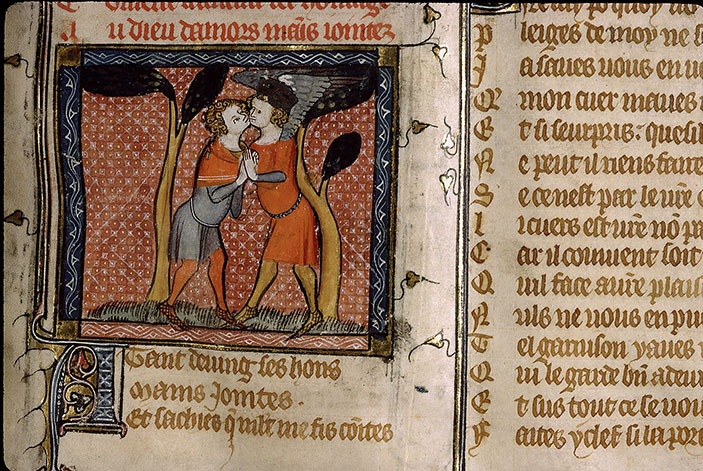 u dieu damors mains iointez
Tant deuing ses hons
mains Jointes.
Et sachies q̄ mlt me fis cointes
P leiges de moy ne s
J a scaues uous en ue
Q mon cuer maues
E t si seurpris: que sil
N e peut il riens faire
S e ce nest par le ure
L i cuers est ure nō pa
C ar il conuient soit
Q uil face aure plais
N uls ne uous en puet
T el garnison yaues
Q ui le garde bn̄ adeu
E t sus tout ce se uou
F aites y clef si la por